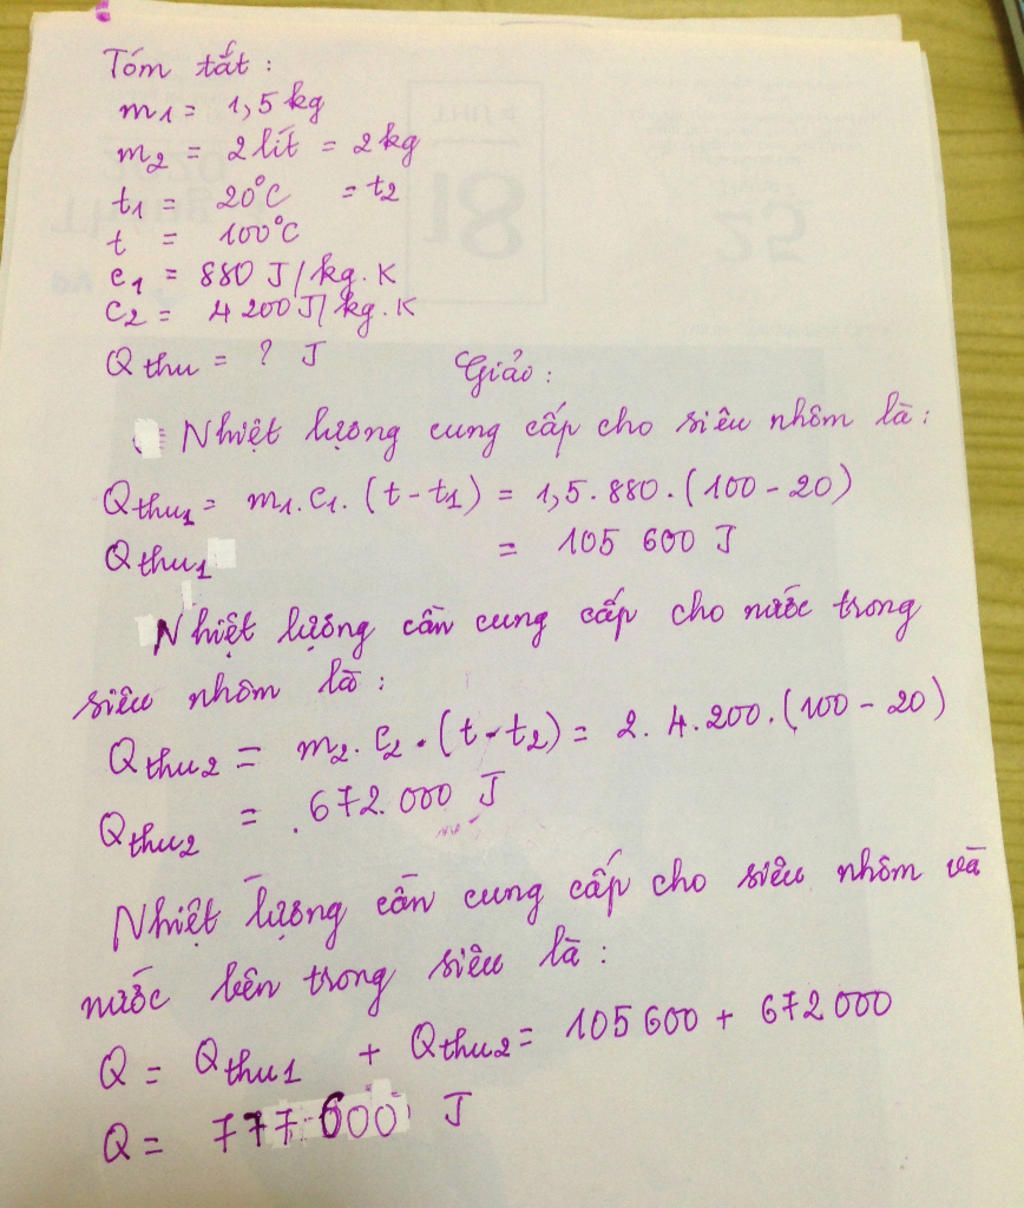 Tóm tắt :
m1 = 1,5 kg
m2 = 2 lít = 2 kg
t1 = 20°C = t2
t = 100°C
c1 = 880 J/kg.K
c2 = 4 200 J/kg.K
Q thu = ? J
Giải :
Nhiệt lượng cung cấp cho siêu nhôm là :
Qthu1 = m1.c1.(t-t1) = 1,5.880.(100-20)
Qthu1 = 105 600 J
Nhiệt lượng cần cung cấp cho nước trong
siêu nhôm là :
Qthu2 = m2.c2.(t-t2) = 2.4.200.(100-20)
Qthu2 = .672.000 J
Nhiệt lượng cần cung cấp cho siêu nhôm và
nước bên trong siêu là :
Q = Qthu1 + Qthu2 = 105 600 + 672 000
Q = 777.600 J